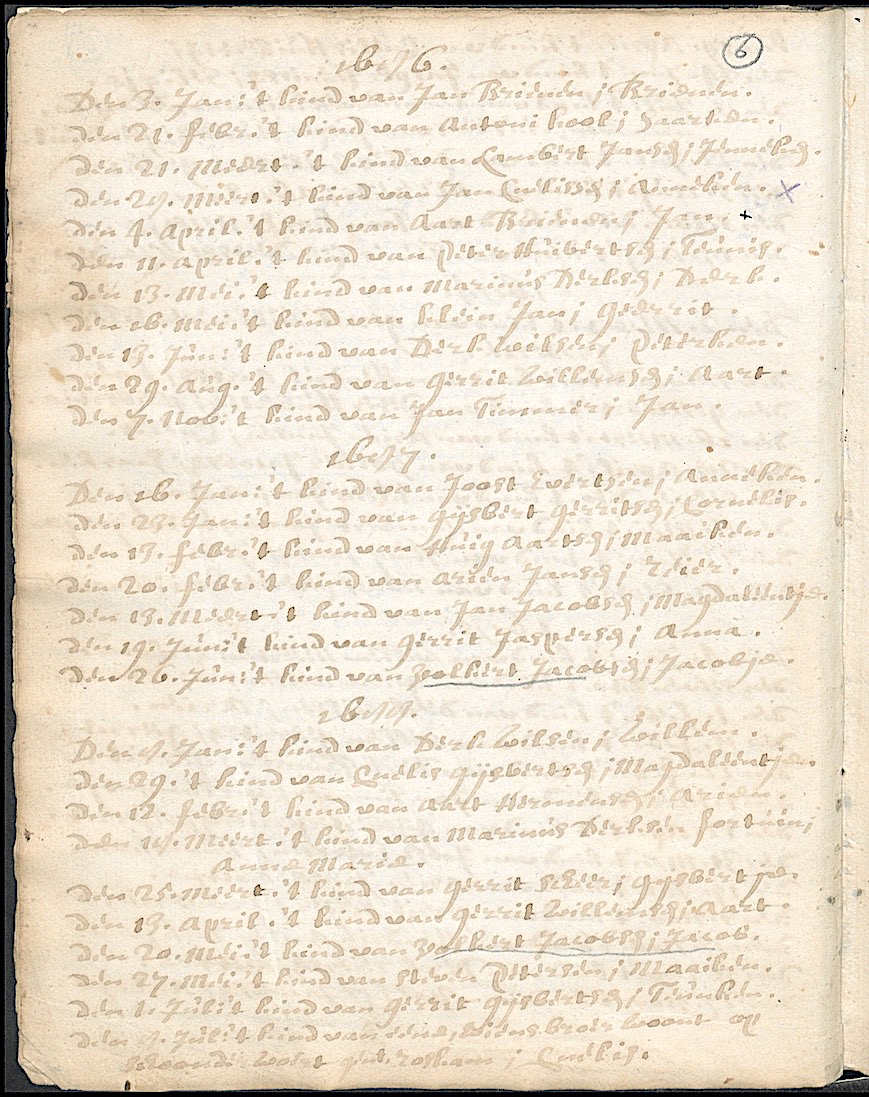 6
1676.
Den 3. Jan: 't kind van Jan Brienen; Brienen.
den 21. febr: 't kind van Antoni kool; Haarken.
den 21. Meert. 't kind van Lambert Jansch; Jenneken.
den 29. Meert. 't kind van Jan Cnelissch; Anneken.
den 4. April. 't kind van Aart Brienen; Jan.
den 11. April. 't kind van Peter Huibertsch; Teunis.
den 13. Mei: 't kind van Marinus Derksch; Derk.
den 16. Mei: 't kind van klein Jan; Geerrit.
den 13. Jun: 't kind van Derk Wilsen; Peterken.
den 29. Aug. 't kind van Gerrit Willemsch; Aart.
den 7. Nov: 't kind van Jan Timmer; Jan.
1677.
Den 16. Jan: 't kind van Joost Evertsen; Anneken.
den 23. Jan: 't kind van Gijsbert Gerritsch; Cornelis.
den 13. febr: 't kind van Huig Aartsch; Maaiken.
den 20. febr: 't kind van Arien Jansch; Reier.
den 13. Meert: 't kind van Jan Jacobsch; Magdaleentje.
den 19. Jun: 't kind van Gerrit Jaspersch; Anna.
den 26. Jun: 't kind van Volkert Jacobsch; Jacobje.
Den Jan: 't kind van Derk Wilsen; Willem.
den 29. 't kind van Cnelis Gijsbertsch; Magdaleentje.
den 12. febr: 't kind van Aart Hermensch; Arien.
den Meert. 't kind van Marinus Derksen fortuin;
Anne Marie.
den 25. Meert. 't kind van Gerrit scheer; Gijsbertje.
den 13. April. 't kind van Gerrit Willemsch; Aart.
den 20. Mei: 't kind van Volkert Jacobsch; Jacob.
den 27. Mei: 't kind van Steven Petersen; Maaiken.
den 1. Juli: 't kind van Gerrit Gijsbertsch; Teunken.
den Juli: 't kind van eene, wiens broer woont op
Cnelis.